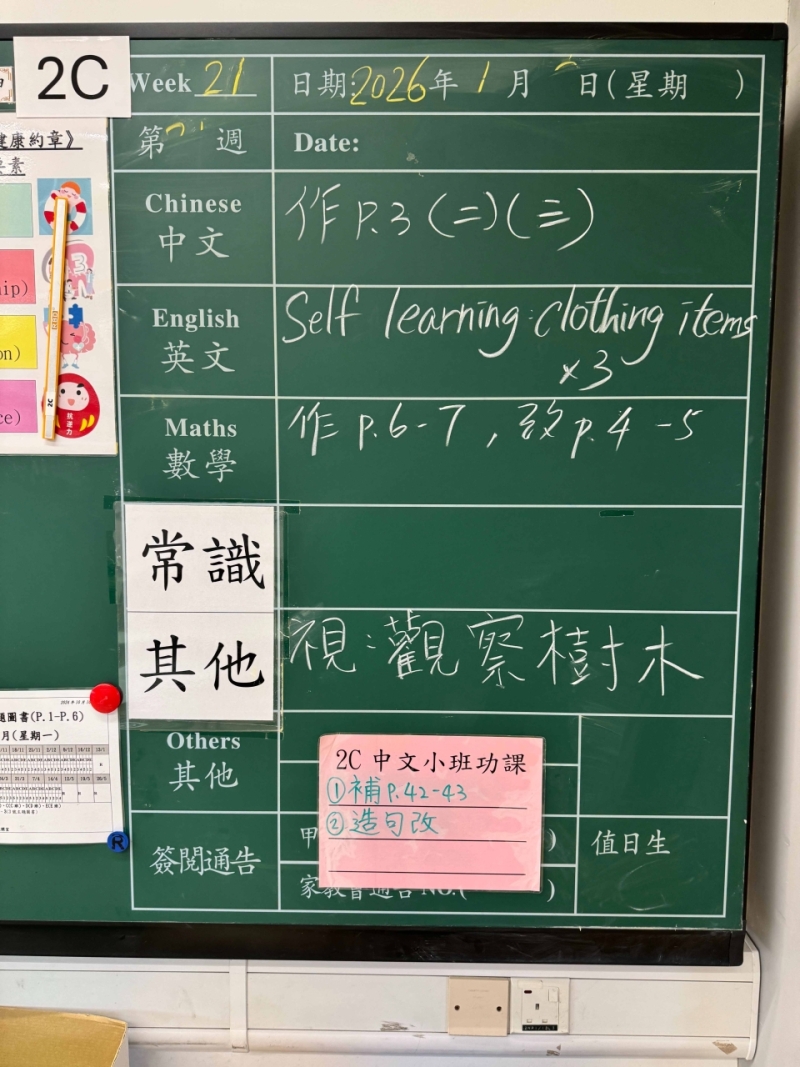 2C
Week 21
日期:2026年1月 日(星期 )
第 週
Date:
健康約章》
要素
Chinese
中文
作 P.3 (二)(三)
English
英文
Self learning: clothing items
×3
Maths
數學
作 p.6-7, 改 p.4-5
常識
其他
視:觀察樹木
Others
其他
2C 中文小班功課
①補 P.42-43
②造句改
簽閱通告
甲
)
家教會通告NO.( )
值日生
圖書(P.1-P.6)
月(星期一)
R
抗逆力
ip)
on)
ce)